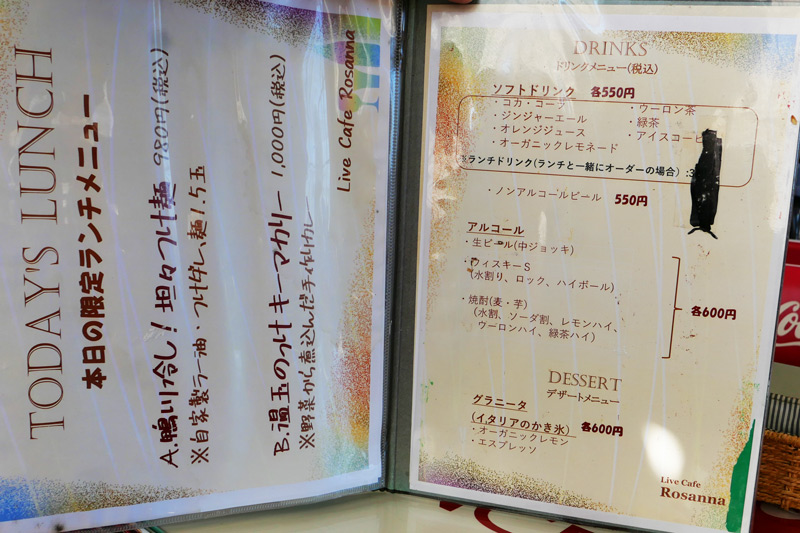 TODAY'S LUNCH
本日の限定ランチメニュー
A.鴨川冷し!坦々つけ麺 980円(税込)
※自家製ラー油・つけダレ、麺1.5玉
B.温玉のっけキーマカリー 1,000円(税込)
※野菜から煮込んだ手作りカレー
Live Cafe Rosanna
DRINKS
ドリンクメニュー(税込)
ソフトドリンク 各550円
・コカ・コーラ
・ジンジャーエール
・オレンジジュース
・オーガニックレモネード
・ウーロン茶
・緑茶
・アイスコーヒ
※ランチドリンク(ランチと一緒にオーダーの場合):3
・ノンアルコールビール 550円
アルコール
・生ビール(中ジョッキ)
・ウィスキーS
(水割り、ロック、ハイボール)
・焼酎(麦・芋)
(水割、ソーダ割、レモンハイ、
ウーロンハイ、緑茶ハイ)
各600円
DESSERT
デザートメニュー
グラニータ
(イタリアのかき氷) 各600円
・オーガニックレモン
・エスプレッソ
Live Cafe
Rosanna